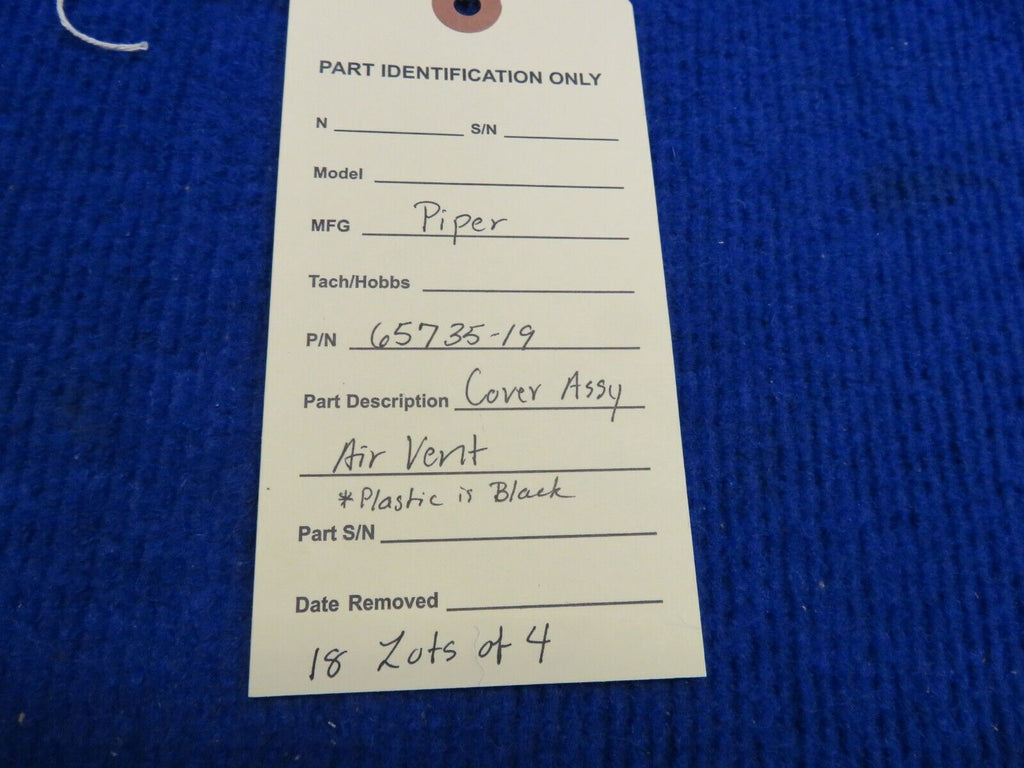 PART IDENTIFICATION ONLY
N S/N
Model
MFG Piper
Tach/Hobbs
P/N 65735-19
Part Description Cover Assy
Air Vent
*Plastic is Black
Part S/N
Date Removed
18 Lots of 4